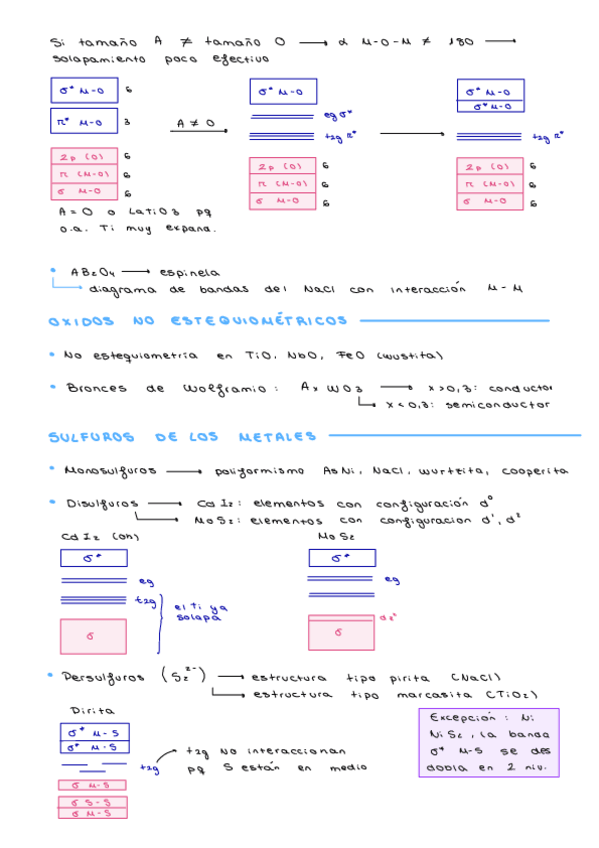 Si tamaño A ≠ tamaño O → α M-O-M ≠ 180 →
solapamiento poco efectivo
σ* M-O 6
π* M-O 3
2p (O) 6
π (M-O) 6
σ M-O 6
A ≠ O
σ* M-O
eg σ*
t2g π*
2p (O) 6
π (M-O) 6
σ M-O 6
σ* M-O
σ* M-O
t2g π*
2p (O) 6
π (M-O) 6
σ M-O 6
A = O o LaTiO3 pq
o.a. Ti muy expand.
• AB2O4 → espinela
diagrama de bandas del NaCl con interacción M-M
OXIDOS NO ESTEQUIOMÉTRICOS
• No estequiometría en TiO, NbO, FeO (wustita)
• Bronces de Wolframio: Ax WO3 → x>0,3: conductor
x<0,3: semiconductor
SULFUROS DE LOS METALES
• Monosulfuros → poliformismo AsNi, NaCl, wurtzita, cooperita
• Disulfuros → CdI2: elementos con configuración d⁰
MoS2: elementos con configuracion d¹, d²
CdI2 (oh)
σ*
eg
t2g
σ
el Ti ya
solapa
MoS2
σ*
eg
σ
• Persulfuros (S2²⁻) → estructura tipo pirita (NaCl)
estructura tipo marcasita (TiO2)
Pirita
σ* M-S
σ* M-S
t2g
σ M-S
σ S-S
σ M-S
t2g no interaccionan
pq S están en medio
Excepción: Ni
NiS2, la banda
σ* M-S se des
dobla en 2 niv.